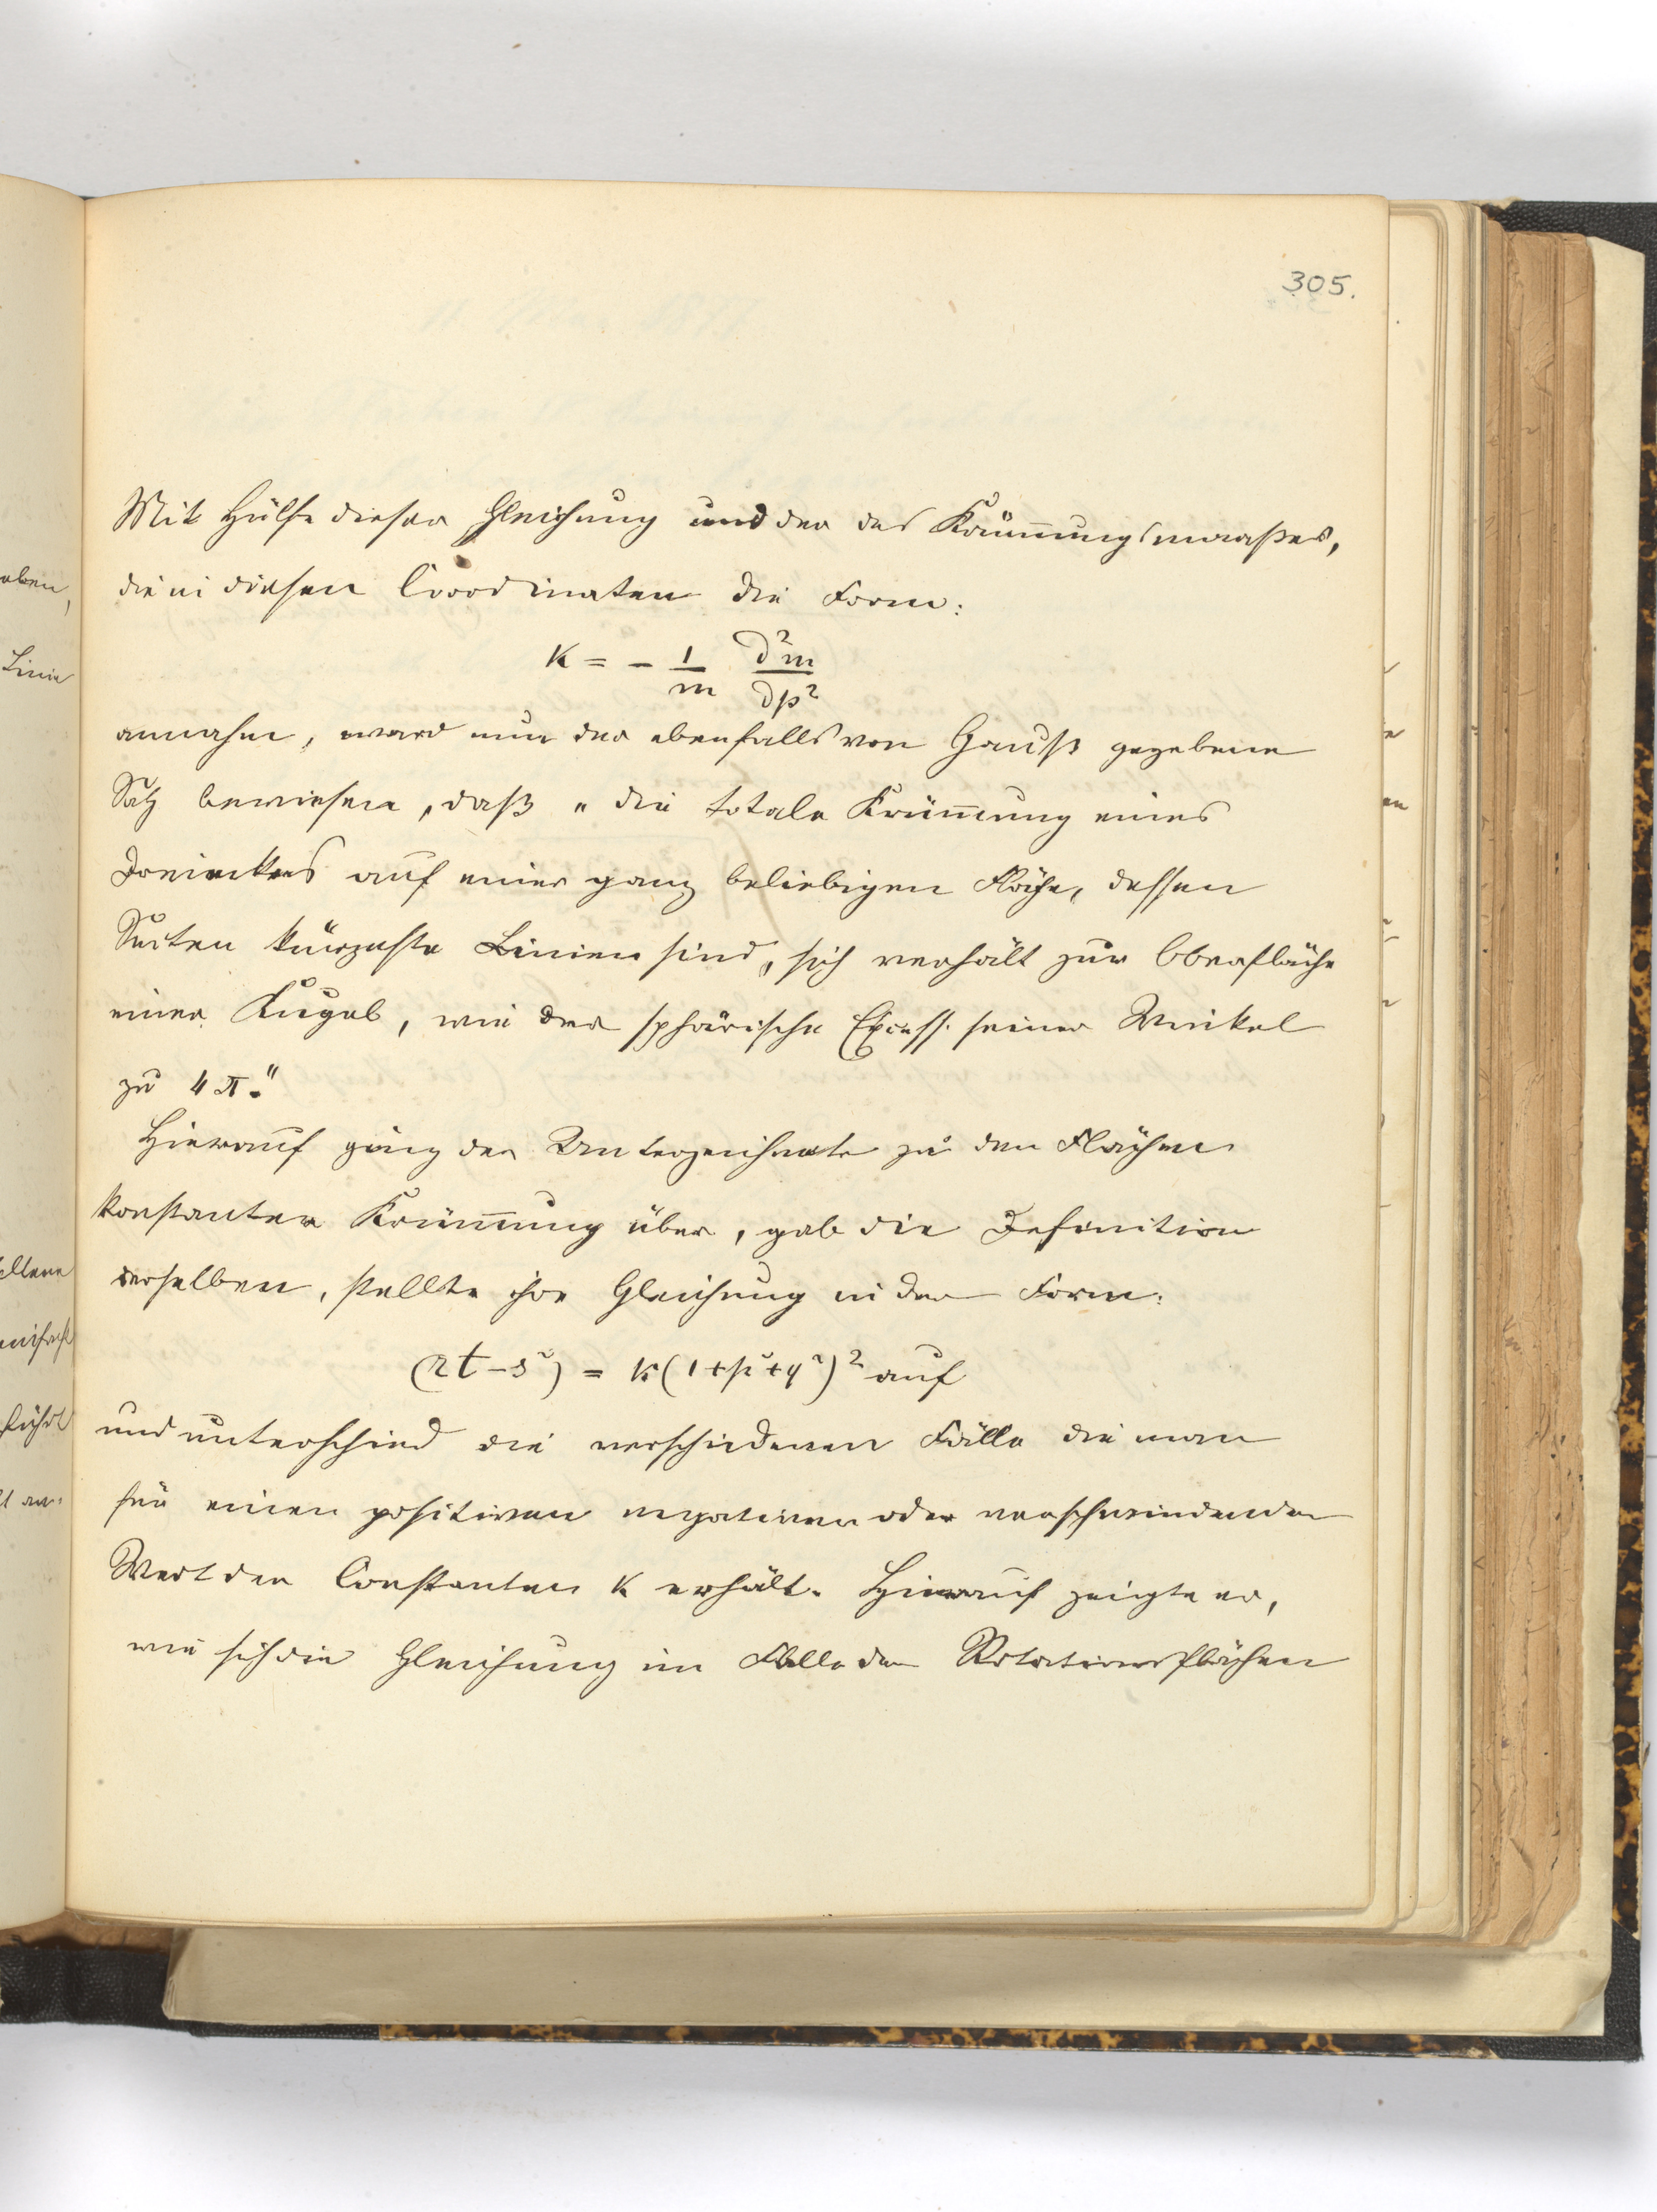 305.
Mit Hülfe dieser Gleichung und der des Krümmungsmaaßes,
die in diesen Coordinaten die Form:
K = - 1/m ∂²m/∂p²
annahm, ward nun der ebenfalls von Gauß gegebene
Satz bewiesen, daß „die totale Krümmung eines
Dreieckes auf einer ganz beliebigen Fläche, dessen
Seiten kürzeste Linien sind, sich verhält zur Oberfläche
einer Kugel, wie der sphärische Excess seiner Winkel
zu 4π."
Hierauf ging der Unterzeichnete zu den Flächen
konstanter Krümmung über, gab die Definition
derselben, stellte ihre Gleichung in der Form:
(rt-s²) = k(1+p²+q²)² auf
und unterschied die verschiedenen Fälle die man
für einen positiven negativen oder verschwindenden
Wert der Constanten k erhält. Hierauf zeigte er,
wie sich die Gleichung im Falle der Rotationsflächen